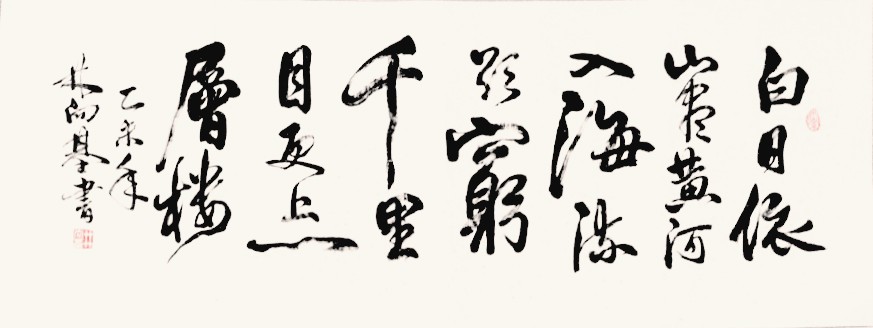 白日依
山盡黄河
入海流
欲窮
千里
目更上一
層楼
乙未年
林向基書